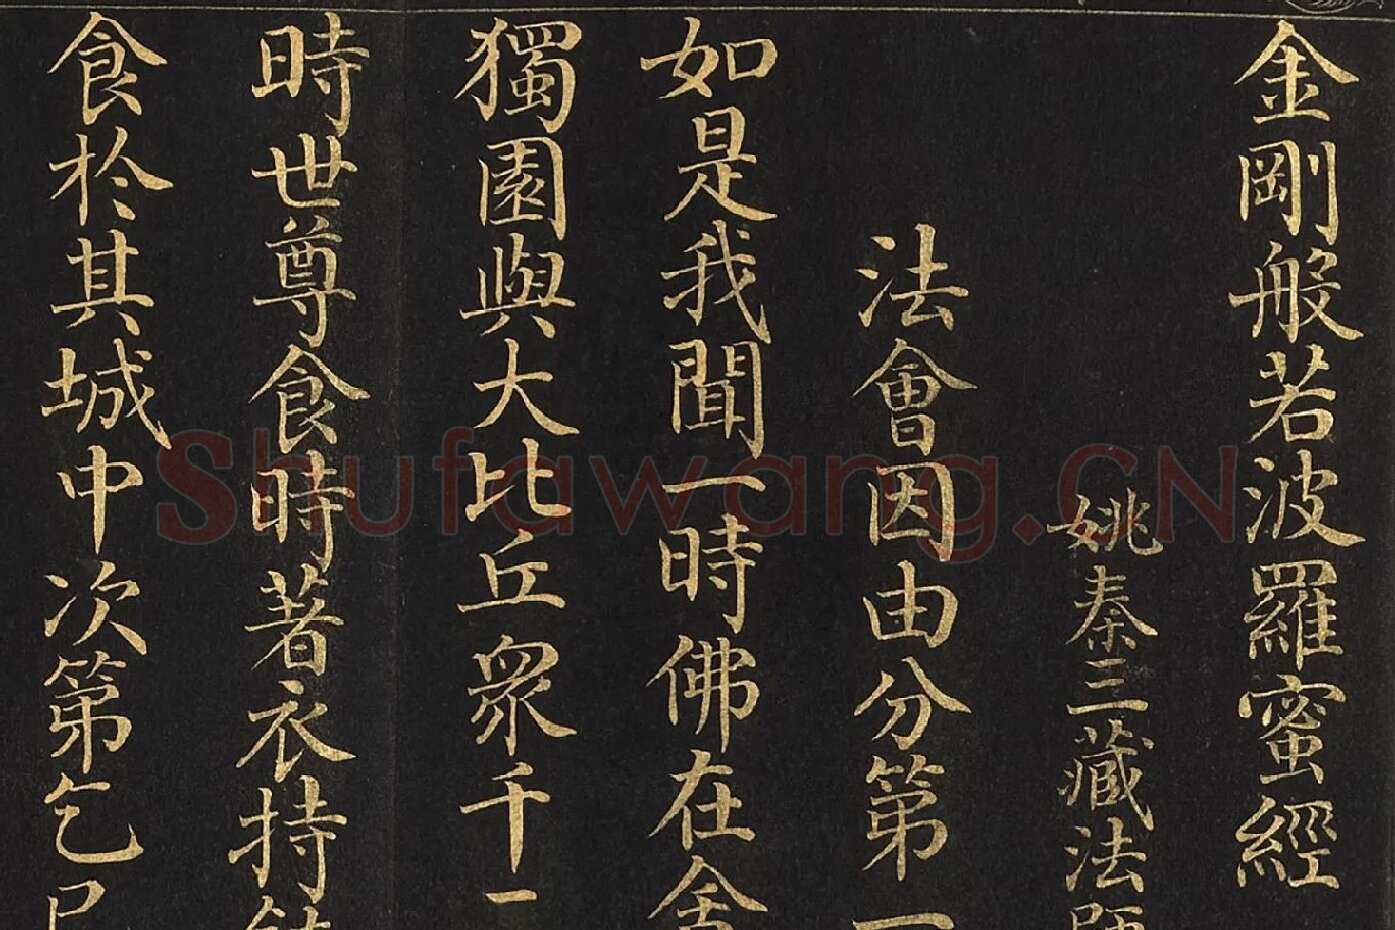 金剛般若波羅蜜經
姚秦三藏法師
法會因由分第一
如是我聞一時佛在舍
獨園與大比丘眾千
時世尊食時著衣持
食於其城中次第乞已
Shufawang.CN